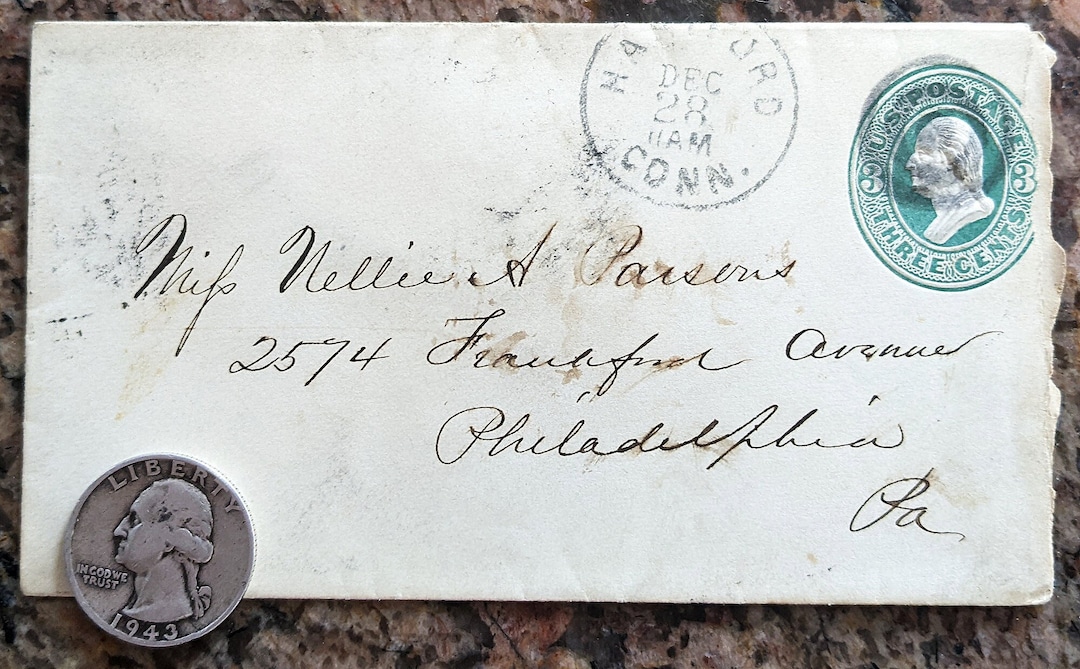 HARTFORD
DEC
28
11AM
CONN.
U.S. POSTAGE
3 3
THREE CENTS
Miss Nellie A Parsons
2574 Frankford Avenue
Philadelphia
Pa
LIBERTY
IN GOD WE
TRUST
1943